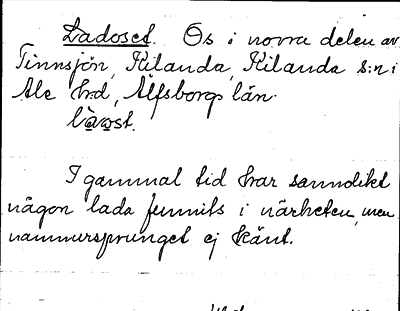 Ladoset. Os i norra delen av
Tinnsjön, Kilanda, Kilanda s:n i
Ale hrd, Älfsborgs län.
I gammal tid har sannolikt
någon lada funnits i närheten, men
namnursprunget ej känt.